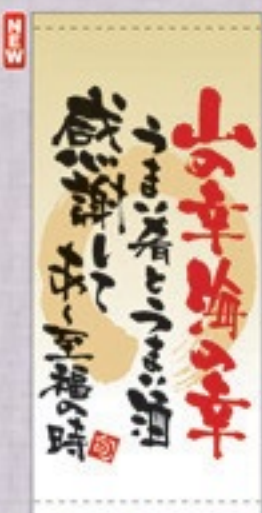 NEW
山の幸海の幸
うまい肴とうまい酒
感謝して
あ〜至福の時